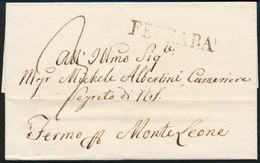 FERRARA
All' Illmo Sigr
Monr Michele Albertini Cameriere
Segreto di N.S.
Fermo Monte Leone